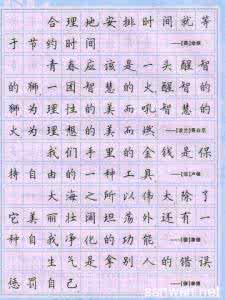 合理地安排时间就等
于节约时间
青春应该是一头醒智
的狮一团智慧的火醒智的
狮为理性的美而吼智慧的
火为理想的美而燃
我们手里的金钱是保
持自由的一种工具
大海之所以伟大除了
它美丽壮阔坦荡外还有一
种自我净化的功能
生气是拿别人的错误
惩罚自己